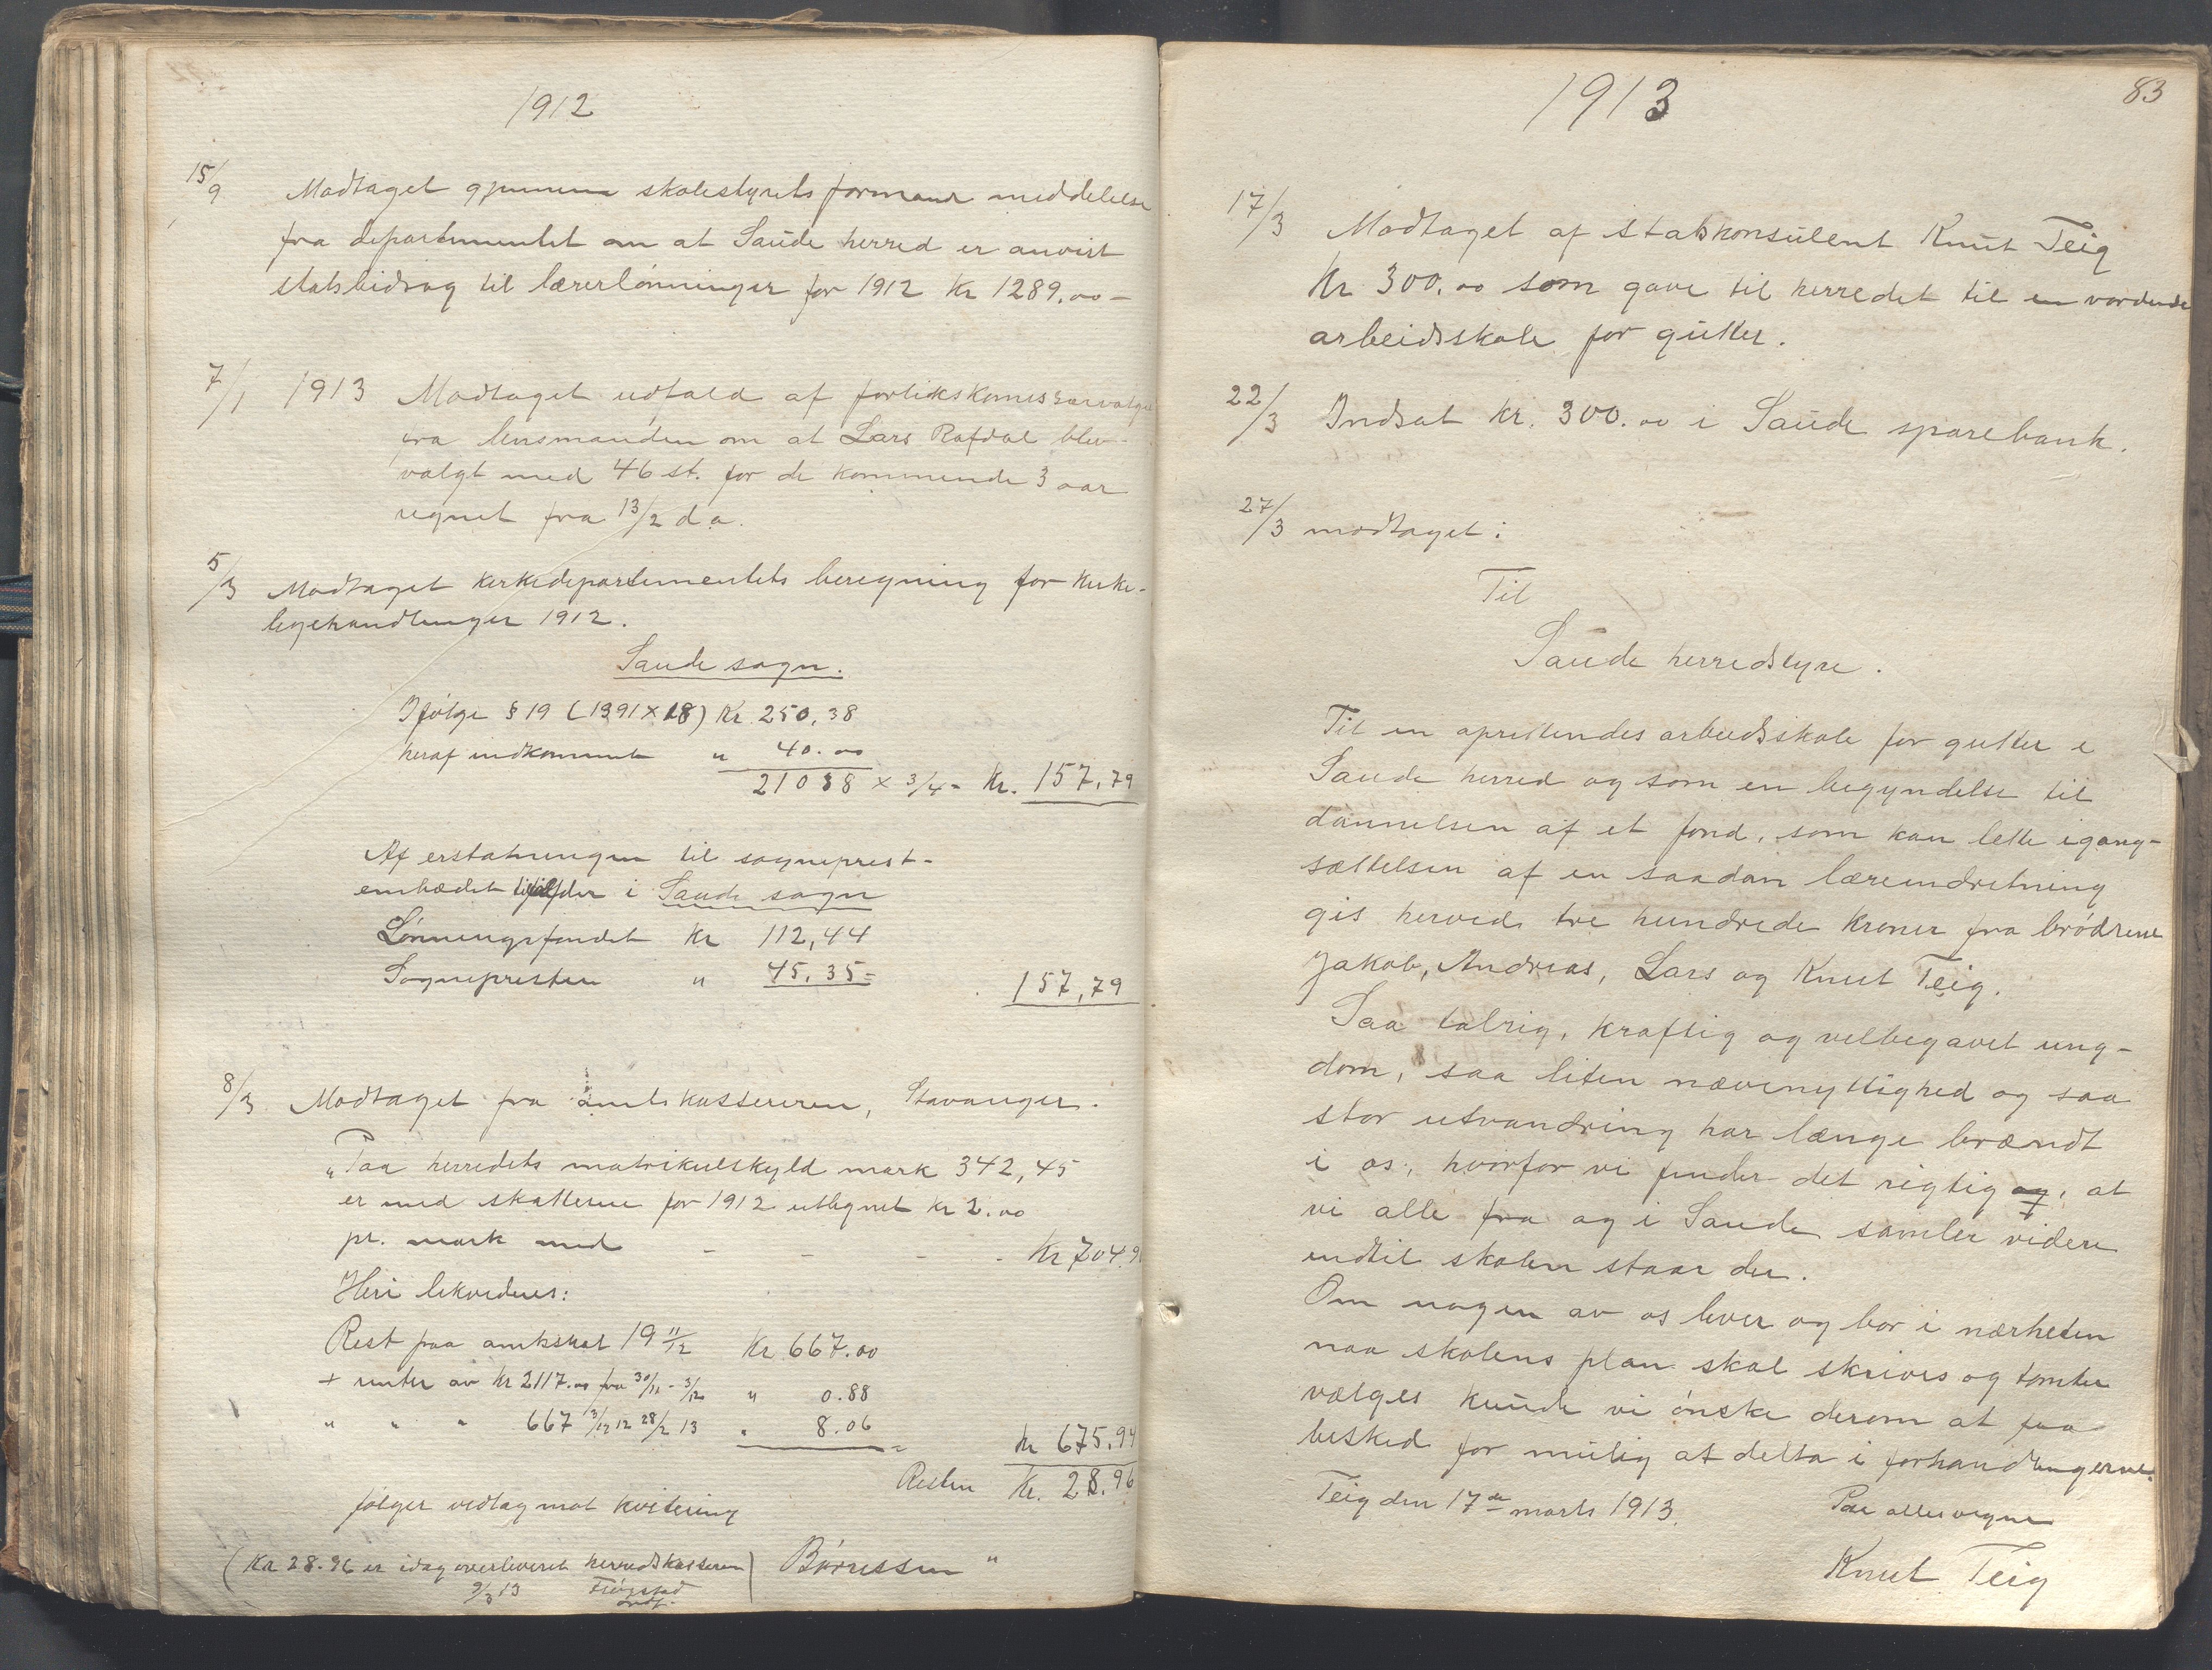 1912
15/9 Modtaget gjennem skolestyrets formand meddelelse
fra departementet om at Saude herred er anvist
statsbidrag til lærerlønninger for 1912 Kr 1289.00 –
7/1 1913 Modtaget udfald af forlikskomissærvalget
fra lensmanden om at Lars Rafdal blev
valgt med 46 st. for de kommende 3 aar
regnet fra 13/2 d.a.
5/3 Modtaget kirkedepartementets beregning for kirke-
ligehandlinger 1912.
Saude sogn.
Ifølge § 19 (1391 x 18) Kr. 250,38
heraf indkommet " 40.00
21038 x 3/4 = Kr. 157,79
Af erstatningen til sogneprest-
embædet tilfalder i Saude sogn
Lønningsfondet Kr 112,44
Sognepresten " 45.35 =
157,79
8/3 Modtaget fra amtskassereren, Stavanger.
"Paa herredets matrikulskyld mark 342,45
er med skatterne for 1912 utlignet Kr 2.00
pr. mark med - - - - Kr 704.9
Heri likvideres:
Rest paa amtsskat 19 11/12 Kr 667.00
+ renter av Kr 2117.00 fra 30/11 - 3/12 " 0.88
" " " 667 3/12 12 28/2 13 " 8.06 =
Kr 675.94
Resten Kr. 28.96
følger vedlag mot kvitering
Børressen "
(Kr 28.96 er idag overleveret herredskasseren)
9/3 13 Fløgstad
ordf.
83
1913
17/3 Modtaget af statskonsulent Knut Teig
Kr 300.00 som gave til herredet til en vordende
arbeidsskole for gutter.
22/3 Indsat kr. 300.00 i Saude sparebank.
27/3 modtaget:
Til
Saude herredstyre.
Til en oprettendes arbeidsskole for gutter i
Saude herred og som en begyndelse til
dannelsen af et fond, som kan lette igang-
sættelsen af en saadan læreindretning
gis herved tre hundrede kroner fra brødrene
Jakob, Andreas, Lars og Knut Teig.
Saa talrig, kraftig og velbegavet ung-
dom, saa liten nævenyttighed og saa
stor utvandring har længe brændt
i os, hvorfor vi finder det rigtig og, at
vi alle fra og i Saude samler videre
indtil skolen staar der.
Om nogen av os lever og bor i nærheten
naar skolens plan skal skrives og tomter
vælges kunde vi ønske derom at faa
besked for mulig at delta i forhandlingerne.
Teig den 17de marts 1913. Paa alles vegne
Knut Teig